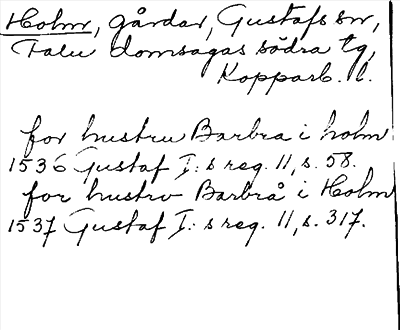 Holm, gårdar, Gustafs sn,
Falu domsagas södra tg,
Kopparb. l.
for hustru Barbra i holm
1536 Gustaf I:s reg. 11, s. 58.
for hustrv Barbrå i Holm
1537 Gustaf I:s reg. 11, s. 317.